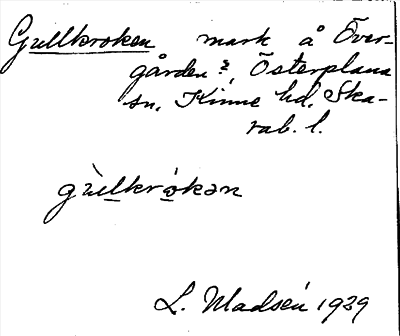 Gullkroken mark å Över-
gården?, Österplana
sn. Kinne hd. Ska-
rab. l.
gùllkrókən
L. Madsén 1929